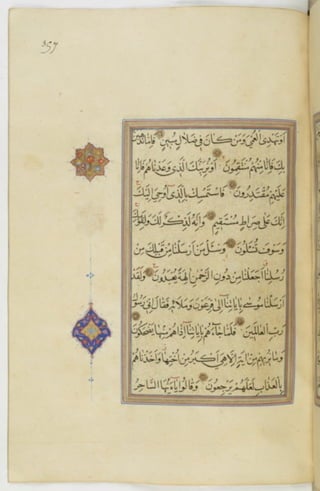 ٣٥٧
أو تهدي العمي ومن كان في ضلال مبين فإما نذهبن
بك فإنا منهم منتقمون أو نرينك الذي وعدناهم فإنا
عليهم مقتدرون فاستمسك بالذي أوحي إليك
إنك على صراط مستقيم وإنه لذكر لك ولقومك
وسوف تسئلون وسئل من أرسلنا من قبلك من
رسلنا أجعلنا من دون الرحمن آلهة يعبدون ولقد
أرسلنا موسى بآياتنا إلى فرعون وملائه فقال إني رسول
رب العالمين فلما جاءهم بآياتنا إذا هم منها يضحكون
وما نريهم من آية إلا هي أكبر من أختها وأخذناهم
بالعذاب لعلهم يرجعون وقالوا يا أيها الساحر